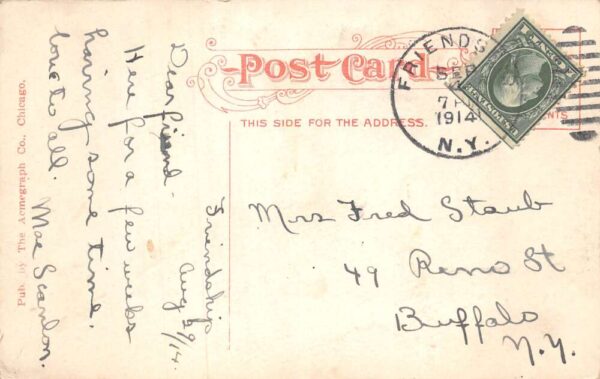 Post Card
THIS SIDE FOR THE ADDRESS.
FRIENDS
SEP
7 A
1914
N.Y.
CENTS
Mrs Fred Staub
49 Reno St
Buffalo
N.Y.
Friendship
Aug 29/14.
Dear friend-
Here for a few weeks
having some time.
love to all.
Mae Scanlon.
Pub. by The Acmegraph Co., Chicago.